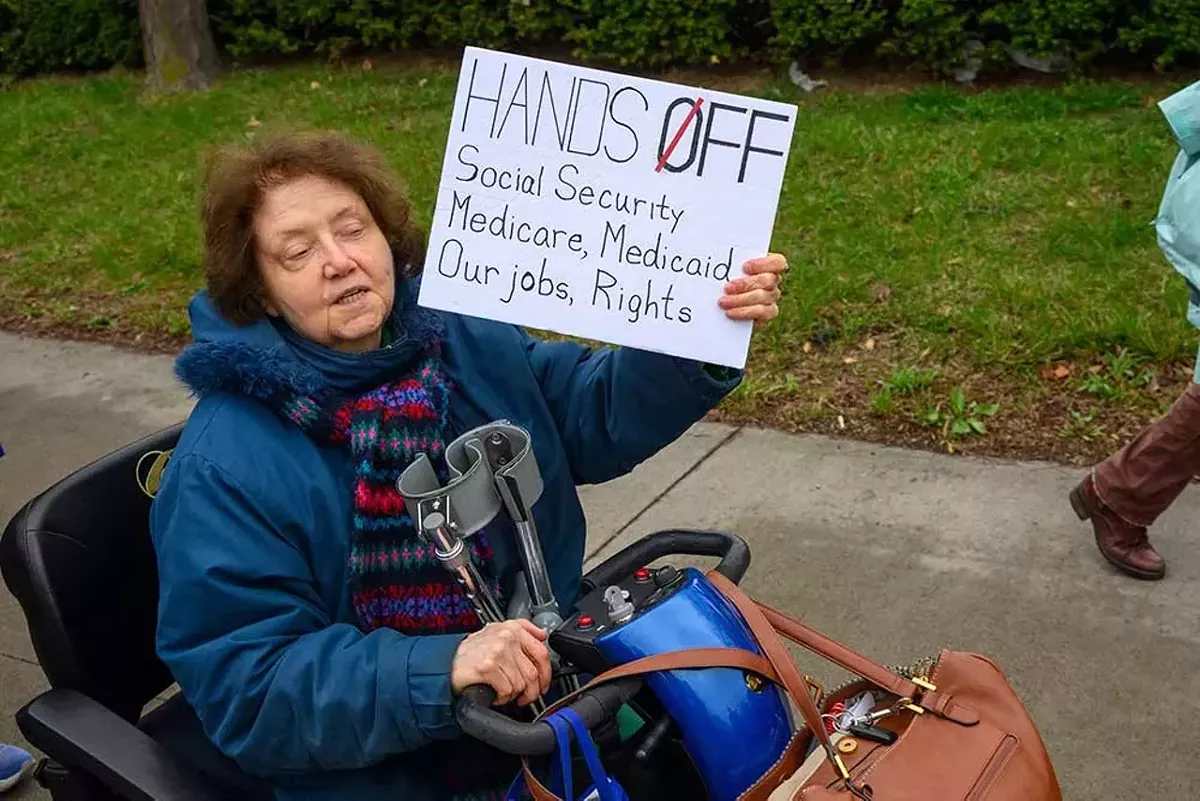 HANDS OFF
Social Security
Medicare, Medicaid
Our jobs, Rights